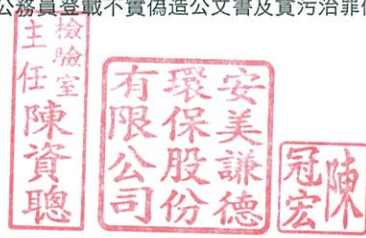 公務員登載不實偽造公文書及貪污治罪
檢驗室
主任陳資聰
安美謙德
環保股份
有限公司
陳
冠宏